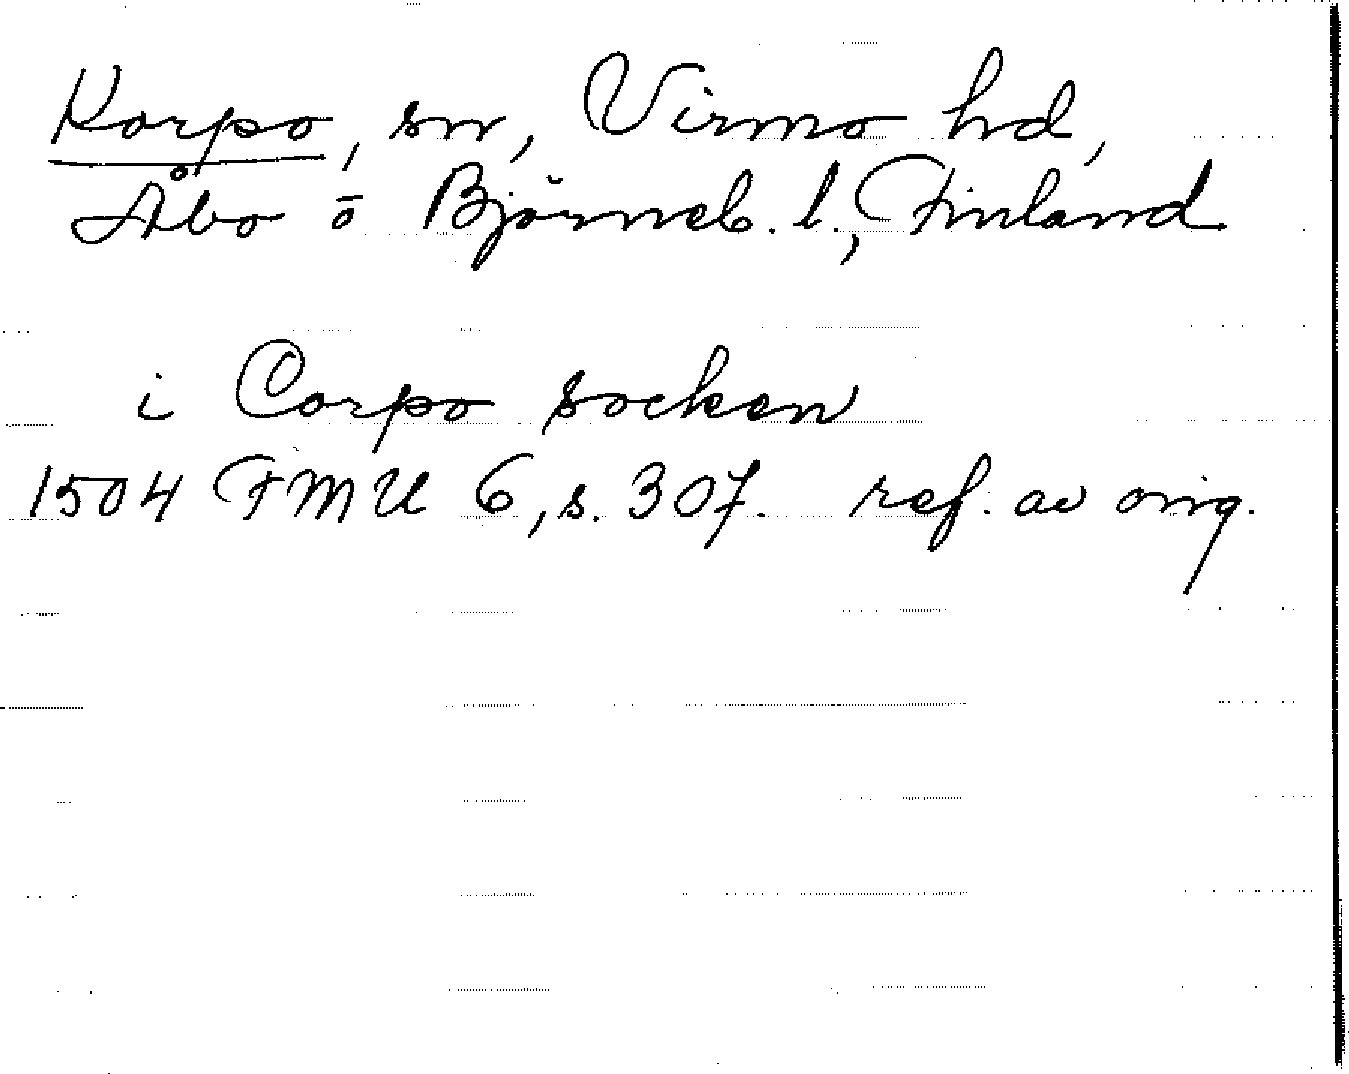 Korpo, sn, Virmo hd,
Åbo o Björneb. l., Finland
i Corpo socken
1504 FMU 6, s. 307. ref. av orig.